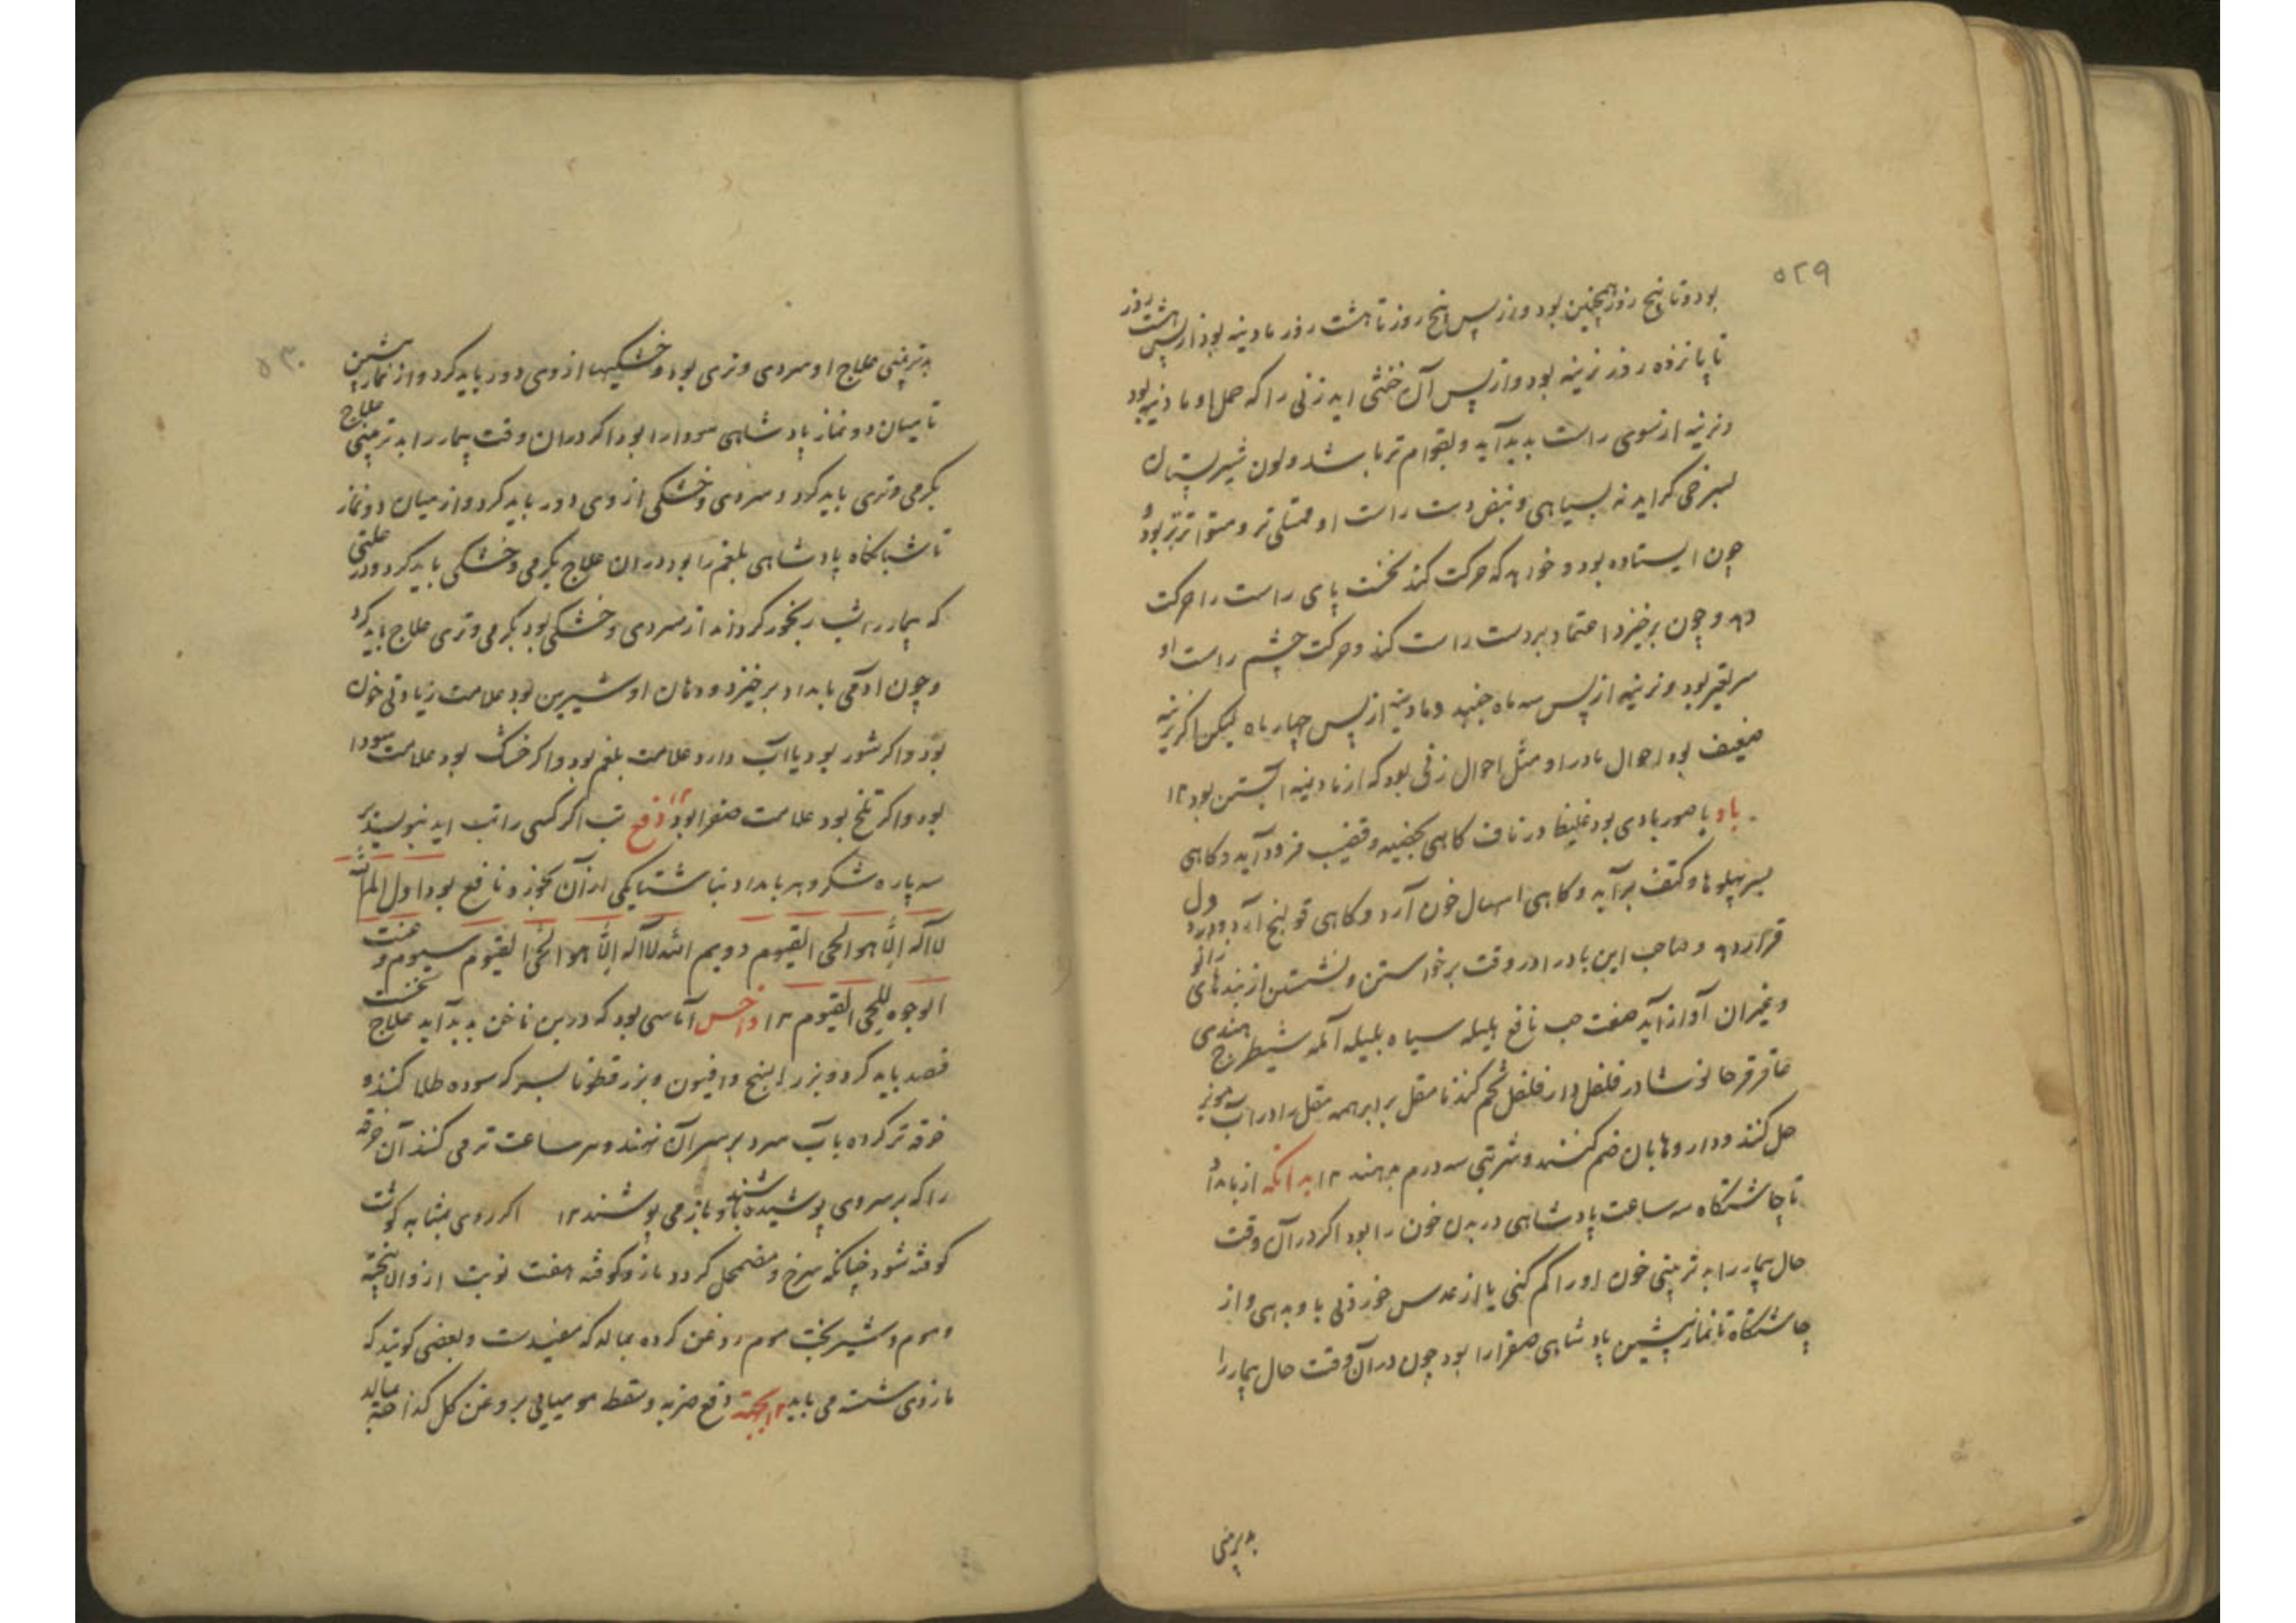 ۵۲۹
بود و تا پنج روز همچنین بود و از پس پنج روز تا هشت روز مادینه بود از پس هشت روز
تا پانزده روز نرینه بود و از پس آن خنثی اید زنی را که حمل او مادینه بود
و نرینه از سوی راست بدید آید و بقوام تر باشد و لون شیر پستان
بسرخی کراید نه بسیاهی و نبض دست راست او ممتلی تر و متواتر تر بود و
چون ایستاده بود و خواهد که حرکت کند نخست پای راست را حرکت
دهد و چون برخیزد اعتماد بر دست راست کند و حرکت چشم راست او
سریعتر بود و نرینه از پس سه ماه جنبد و مادینه از پس چهار ماه لیکن اکر نرینه
ضعیف بود احوال مادر او مثل احوال زنی بود که از مادینه آبستن بود ۱۲
باد باصور بادی بود غلیظ در ناف کاهی بخصیه و قضیب فرود آید و کاهی
بسر پهلوها و کتف برآید و کاهی اسهال خون آرد و کاهی قولنج آرد و درد دل
قرار دهد و صاحب این باد را در وقت برخواستن و نشستن از بندهای زانو
و غیران آواز آید صفت حب نافع هلیله سیاه بلیله آمله شیطرج هندی
عاقرقرحا نوشادر فلفل دارفلفل شحم کندنا مقل برابر همه مقل را در آب مویز
حل کنند و داروها بان ضم کنند و شربتی سه درم بدهند ۱۲ بدانکه از بامداد
تا چاشتکاه سه ساعت پادشاهی در بدن خون را بود اکر در آن وقت
حال بیمار را بدتر بینی خون او را کم کنی یا از عدس خوردنی باو بدهی و از
چاشتکاه تا نماز پیشین پادشاهی صفرا را بود چون در آن وقت حال بیمار را
بدتر بینی
۵۳۰
بدتر بینی علاج او سردی و تری بود و خشکیها از وی دور باید کرد و از نماز پیشین
تا میان دو نماز پادشاهی سودا را بود اکر دران وقت بیمار را بدتر بینی علاج
بکرمی و تری باید کرد و سردی و خشکی از وی دور باید کرد و از میان دو نماز
تا شبانکاه پادشاهی بلغم را بود دران علاج بکرمی و خشکی باید کرد و در علتی
که بیمار را شب رنجور کرداند از سردی و خشکی بود بکرمی و تری علاج باید کرد
و چون ادمی بامداد برخیزد و دهان او شیرین بود علامت زیادتی خون
بود و اکر شور بود یا آب دارد علامت بلغم بود و اکر خشک بود علامت سودا
بود و اکر تلخ بود علامت صفرا بود ۱۲ دفع تب اکر کسی را تب اید بنویسند بر
سه پاره شکر و هر بامداد ناشتا یکی از آن بخورد نافع بود اول الم الله
لا اله الا هو الحی القیوم دویم الله لا اله الا هو الحی القیوم سیوم و عنت
الوجوه للحی القیوم ۱۲ داخس آماسی بود که در بن ناخن بدید آید علاج نخست
فصد باید کرد و بزر البنج و افیون و بزر قطونا بسرکه سوده طلا کنند و
خرقه تر کرده بآب سرد بر سر آن نهند و هر ساعت تر می کنند آن خرقه
را که بر سر وی پوشیده باشند و باز می پوشند ۱۲ اکر روی بمثابه کوشت
کوفته شود چنانکه سرخ و مضمحل کردد مازو کوفته هفت نوبت
و موم و شیر بخت موم روغن کرده بمالد که مفیدست و بعضی کویند که
مازوی شسته می باید ۱۲ بجهته دفع ضربه و سقطه مومیایی بروغن کل کداخته بمالد